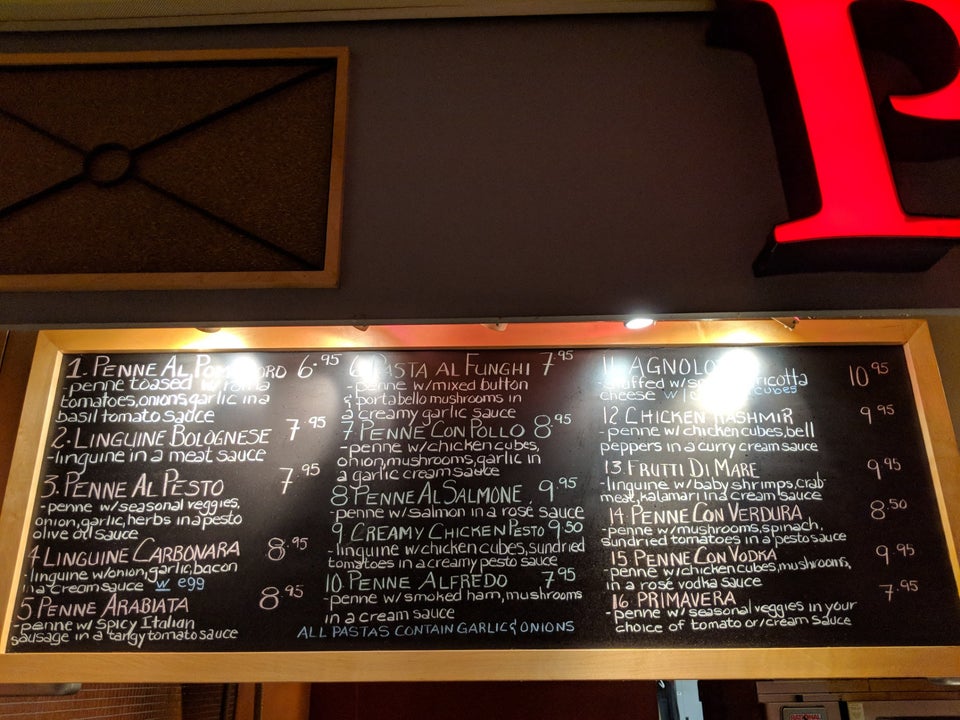 P
1. PENNE AL POMODORO 6.95
-penne toased w/roma
tomatoes, onions, garlic in a
basil tomato sauce
2. LINGUINE BOLOGNESE 7.95
-linguine in a meat sauce
3. PENNE AL PESTO 7.95
-penne w/seasonal veggies,
onion, garlic, herbs in a pesto
olive oil sauce
4 LINGUINE CARBONARA 8.95
-linguine w/onion, garlic, bacon
in a cream sauce w egg
5 PENNE ARABIATA 8.95
-penne w/ spicy Italian
sausage in a tangy tomato sauce
6 PASTA AL FUNGHI 7.95
-penne w/mixed button
& portabello mushrooms in
a creamy garlic sauce
7 PENNE CON POLLO 8.95
-penne w/chicken cubes,
onion, mushrooms, garlic in
a garlic cream sauce
8 PENNE AL SALMONE 9.95
-penne w/salmon in a rosé sauce
9 CREAMY CHICKEN PESTO 9.50
-linguine w/chicken cubes, sundried
tomatoes in a creamy pesto sauce
10 PENNE ALFREDO 7.95
-penne w/smoked ham, mushrooms
in a cream sauce
ALL PASTAS CONTAIN GARLIC & ONIONS
11. 10.95
-stuffed w/ ricotta
cheese w/ cubes
12 CHICKEN KASHMIR 9.95
-penne w/chicken cubes, bell
peppers in a curry cream sauce
13. FRUTTI DI MARE 9.95
-linguine w/baby shrimps, crab
meat, kalamari in a cream sauce
14 PENNE CON VERDURA 8.50
-penne w/mushrooms, spinach,
sundried tomatoes in a pesto sauce
15 PENNE CON VODKA 9.95
-penne w/chicken cubes, mushrooms,
in a rosé vodka sauce
16 PRIMAVERA 7.95
-penne w/seasonal veggies in your
choice of tomato or/cream sauce